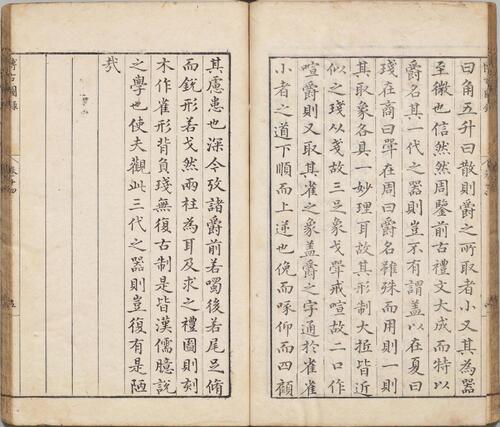 曰角五升曰散則爵之所取者小又其為器
至微也信然然周鑒前古禮文大成而特以
爵名其一代之器則豈不有謂蓋以在夏曰
琖在商曰斝在周曰爵名雖殊而用則一則
其取象各具一妙理耳故其形制大抵皆近
似之琖从戔故三足象戈斝戒喧故二口作
喧爵則又取其雀之象盖爵之字通於雀雀
小者之道下順而上逆也俛而啄仰而四顧
其慮患也深今攷諸爵前若噣後若尾足脩
而銳形若戈然兩柱為耳及求之禮圖則刻
木作雀形背負琖無復古制是皆漢儒臆說
之學也使夫觀此三代之器則豈復有是陋
哉